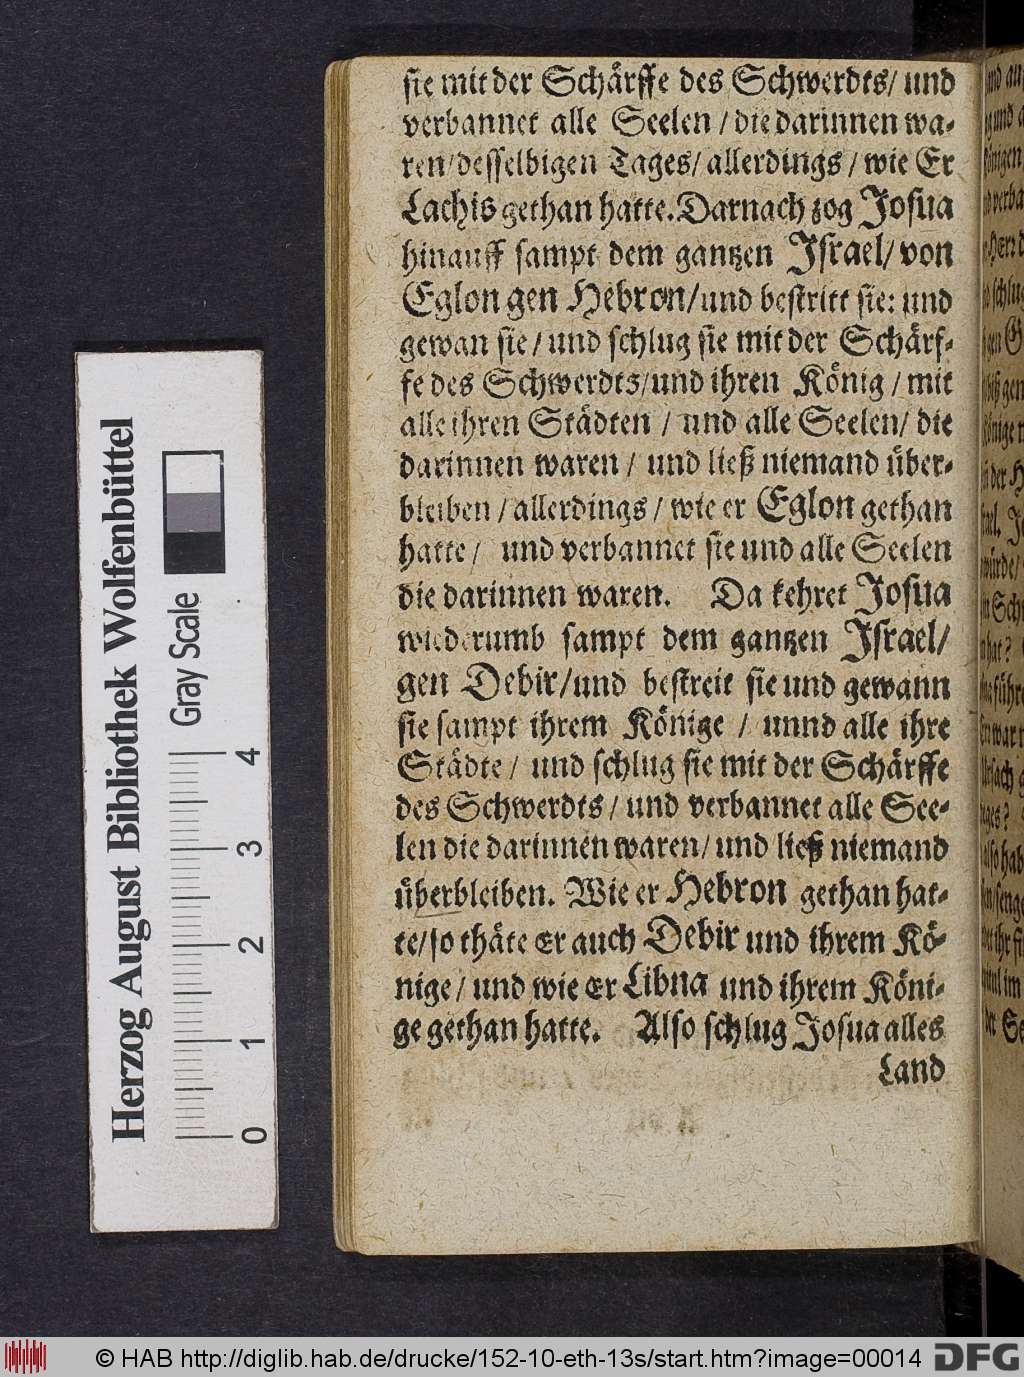 sie mit der Schärffe des Schwerdts/ und
verbannet alle Seelen / die darinnen wa-
ren/ desselbigen Tages/ allerdings / wie Er
Lachis gethan hatte. Darnach zog Josua
hinauff sampt dem gantzen Israel/ von
Eglon gen Hebron/und bestritt sie: und
gewan sie / und schlug sie mit der Schärf-
fe des Schwerdts/und ihren König / mit
alle ihren Städten / und alle Seelen/ die
darinnen waren / und ließ niemand über-
bleiben / allerdings / wie er Eglon gethan
hatte / und verbannet sie und alle Seelen
die darinnen waren. Da kehret Josua
wiederumb sampt dem gantzen Israel/
gen Debir/und bestreit sie und gewann
sie sampt ihrem Könige / unnd alle ihre
Städte / und schlug sie mit der Schärffe
des Schwerdts / und verbannet alle See-
len die darinnen waren/ und ließ niemand
überbleiben. Wie er Hebron gethan hat-
te/so thäte Er auch Debir und ihrem Kö-
nige / und wie Er Libna und ihrem Köni-
ge gethan hatte. Also schlug Josua alles
Land
Herzog August Bibliothek Wolfenbüttel
Gray Scale
0 1 2 3 4
© HAB http://diglib.hab.de/drucke/152-10-eth-13s/start.htm?image=00014
DFG